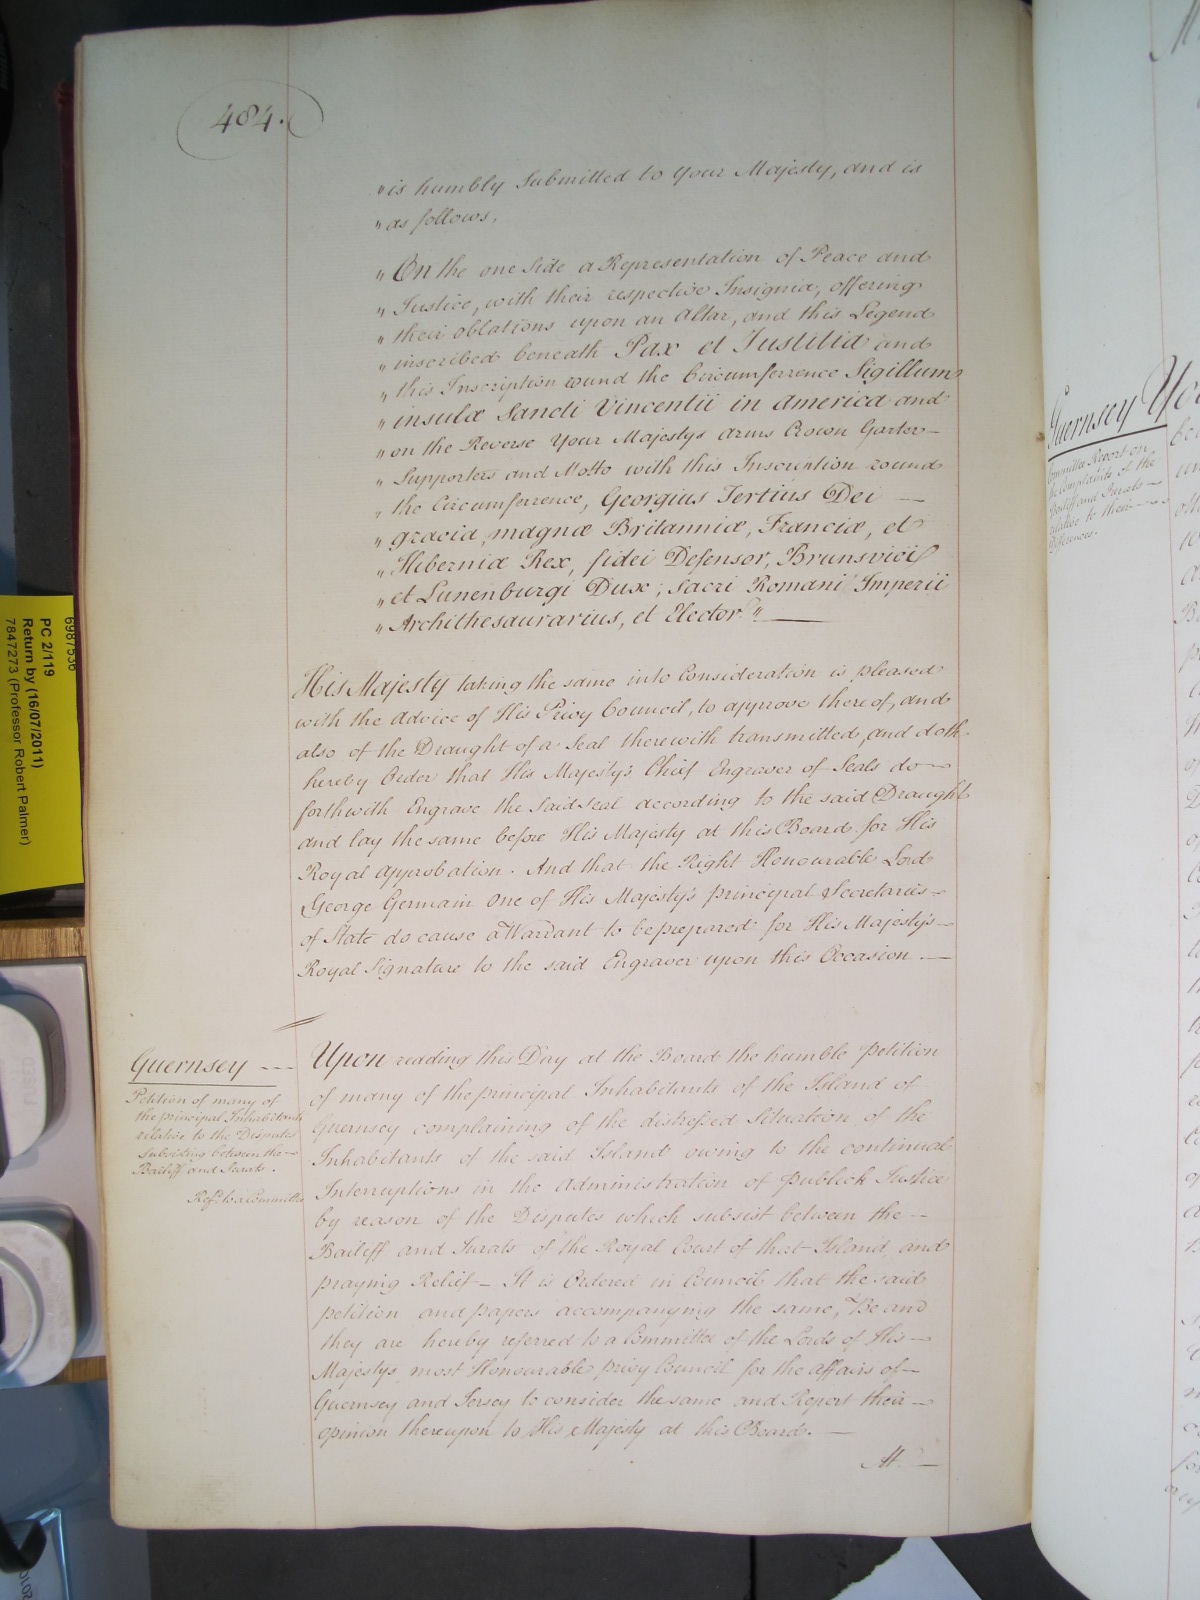 484.
"is humbly Submitted to Your Majesty, and is
"as follows,
"On the one Side a Representation of Peace and
"Justice, with their respective Insignia, offering
"their oblations upon an Altar, and this Legend
"inscribed beneath Pax et Justitia and
"this Inscription round the Circumferrence Sigillum
"insulæ Sancti Vincentii in America and
"on the Reverse Your Majestys Arms Crown Garter
"Supporters and Motto with this Inscription round
"the Circumference, Georgius Tertius Dei —
"gracia, magnæ Britanniæ, Franciæ, et
"Hiberniæ Rex, fidei Defensor, Brunsvici
"et Lunenburgi Dux, Sacri Romani Imperii
"Archithesaurarius, et Elector" —
His Majesty taking the same into Consideration is pleased
with the Advice of His Privy Council, to approve thereof, and
also of the Draught of a Seal therewith transmitted, and doth
hereby Order that His Majesty's Chief Engraver of Seals do
forthwith Engrave the said Seal according to the said Draught
and lay the same before His Majesty at this Board for His
Royal Approbation. And that the Right Honourable Lord
George Germain One of His Majesty's principal Secretaries
of State do cause a Warrant to be prepared for His Majesty's
Royal Signature to the said Engraver upon this Occasion. —
Guernsey ---
Petition of many of
the principal Inhabitants
relative to the Disputes
subsisting between the
Bailiff and Jurats.
Ref. to a Committee
Upon reading this Day at the Board the humble Petition
of many of the principal Inhabitants of the Island of
Guernsey complaining of the distressed Situation of the
Inhabitants of the said Island owing to the continual
Interruptions in the Administration of Publick Justice
by reason of the Disputes which subsist between the —
Baileff and Jurats of the Royal Court of that Island, and
praying Relief — It is Ordered in Council that the said
petition and papers accompanying the same, Be and
they are hereby referred to a Committee of the Lords of His —
Majestys most Honourable privy Council for the affairs of —
Guernsey and Jersey to consider the same and Report their —
opinion thereupon to His Majesty at this Board. —
At —
Guernsey
Committee Report on
the Complaints of the
Bailiff and Jurats
relative to their
Differences.
6987536
PC 2/119
Return by (16/07/2011)
7847273 (Professor Robert Palmer)